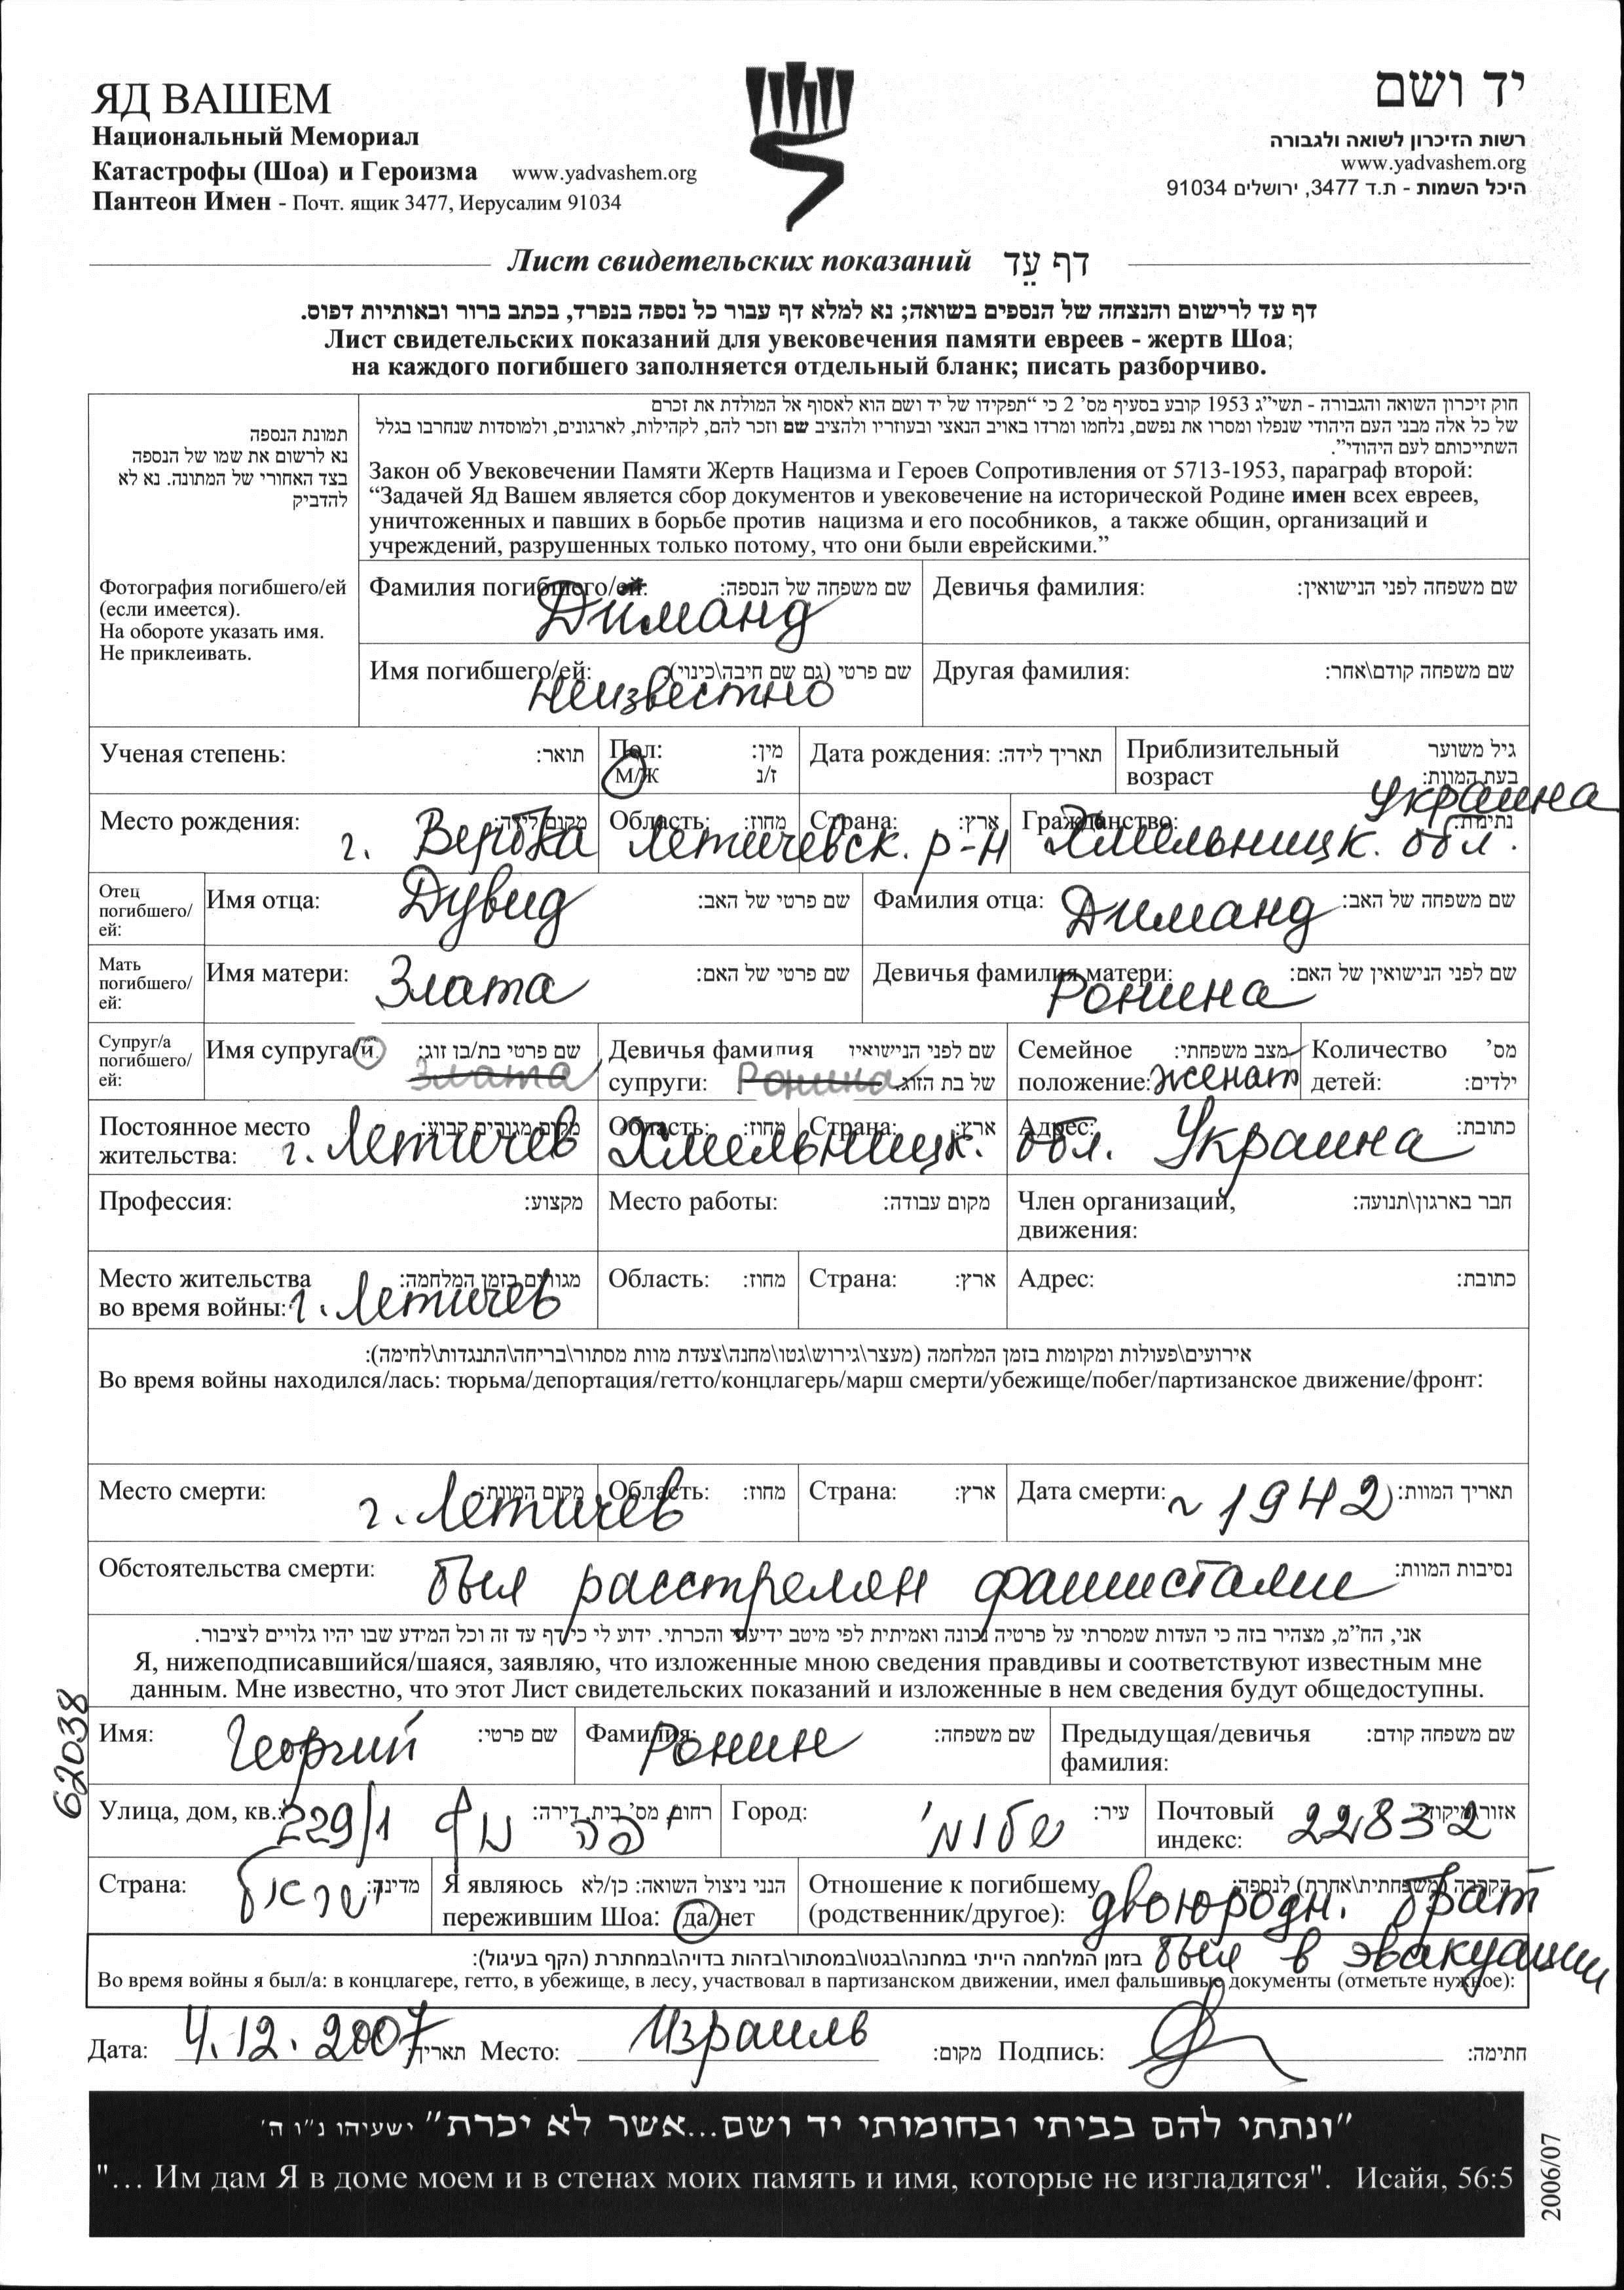 ЯД ВАШЕМ
Национальный Мемориал
Катастрофы (Шоа) и Героизма www.yadvashem.org
Пантеон Имен - Почт. ящик 3477, Иерусалим 91034
יד ושם
רשות הזיכרון לשואה ולגבורה
www.yadvashem.org
היכל השמות - ת.ד 3477, ירושלים 91034
Лист свидетельских показаний דף עֵד
דף עד לרישום והנצחה של הנספים בשואה; נא למלא דף עבור כל נספה בנפרד, בכתב ברור ובאותיות דפוס.
Лист свидетельских показаний для увековечения памяти евреев - жертв Шоа;
на каждого погибшего заполняется отдельный бланк; писать разборчиво.
תמונת הנספה
נא לרשום את שמו של הנספה
בצד האחורי של המתונה. נא לא
להדביק
Фотография погибшего/ей
(если имеется).
На обороте указать имя.
Не приклеивать.
חוק זיכרון השואה והגבורה - תשי״ג 1953 קובע בסעיף מס׳ 2 כי “תפקידו של יד ושם הוא לאסוף אל המולדת את זכרם
של כל אלה מבני העם היהודי שנפלו ומסרו את נפשם, נלחמו ומרדו באויב הנאצי ובעוזריו ולהציב שם וזכר להם, לקהילות, לארגונים, ולמוסדות שנחרבו בגלל
השתייכותם לעם היהודי״.
Закон об Увековечении Памяти Жертв Нацизма и Героев Сопротивления от 5713-1953, параграф второй:
“Задачей Яд Вашем является сбор документов и увековечение на исторической Родине имен всех евреев,
уничтоженных и павших в борьбе против нацизма и его пособников, а также общин, организаций и
учреждений, разрушенных только потому, что они были еврейскими.”
Фамилия погибшего/ей: שם משפחה של הנספה: Девичья фамилия: שם משפחה לפני הנישואין:
Диманд
Имя погибшего/ей: שם פרטי (גם שם חיבה\כינוי): Другая фамилия: שם משפחה קודם\אחר:
неизвестно
Ученая степень: תואר: Пол: מין: Дата рождения: תאריך לידה: Приблизительный גיל משוער
М/Ж ז/נ возраст בעת המוות:
Украина
Место рождения: מקום לידה: Область: מחוז: Страна: ארץ: Гражданство: נתינות:
г. Вербка Летичевск. р-н Хмельницк. обл.
Отец
погибшего/
ей:
Имя отца: Дувид שם פרטי של האב: Фамилия отца: Диманд שם משפחה של האב:
Мать
погибшего/
ей:
Имя матери: Злата שם פרטי של האם: Девичья фамилия матери: Ронина שם לפני הנישואין של האם:
Супруг/а
погибшего/
ей:
Имя супруга/и: שם פרטי בת/בן זוג: Девичья фамилия שם לפני הנישואין Семейное מצב משפחתי: Количество מס׳
Злата супруги: Ронина של בת הזוג: положение: женат детей: ילדים:
Постоянное место מקום מגורים קבוע: Область: מחוז: Страна: ארץ: Адрес: כתובת:
жительства: г. Летичев Хмельницк. обл. Украина
Профессия: מקצוע: Место работы: מקום עבודה: Член организации, חבר בארגון\תנועה:
движения:
Место жительства מגורים בזמן המלחמה: Область: מחוז: Страна: ארץ: Адрес: כתובת:
во время войны: г. Летичев
אירועים\פעולות ומקומות בזמן המלחמה (מעצר\גירוש\גטו\מחנה\צעדת מוות מסתור\בריחה\התנגדות\לחימה):
Во время войны находился/лась: тюрьма/депортация/гетто/концлагерь/марш смерти/убежище/побег/партизанское движение/фронт:
Место смерти: מקום המוות: Область: מחוז: Страна: ארץ: Дата смерти: ~ 1942 תאריך המוות:
г. Летичев
Обстоятельства смерти: был расстрелян фашистами נסיבות המוות:
אני, הח״מ, מצהיר בזה כי העדות שמסרתי על פרטיה נכונה ואמיתית לפי מיטב ידיעתי והכרתי. ידוע לי כי דף עד זה וכל המידע שבו יהיו גלויים לציבור.
Я, нижеподписавшийся/шаяся, заявляю, что изложенные мною сведения правдивы и соответствуют известным мне
данным. Мне известно, что этот Лист свидетельских показаний и изложенные в нем сведения будут общедоступны.
62038
Имя: Георгий שם פרטי: Фамилия: Ронин שם משפחה: Предыдущая/девичья שם משפחה קודם:
фамилия:
Улица, дом, кв.: 229/1 יפה נוף רחוב, מס׳ בית, דירה: Город: שלומי עיר: Почтовый אזור/מיקוד:
индекс: 22832
Страна: ישראל מדינה: Я являюсь הנני ניצול השואה: כן/לא Отношение к погибшему הקרבה (משפחתית\אחרת) לנספה:
пережившим Шоа: да/нет (родственник/другое): двоюродн. брат
בזמן המלחמה הייתי במחנה\בגטו\במסתור\בזהות בדויה\במחתרת (הקף בעיגול): был в эвакуации
Во время войны я был/а: в концлагере, гетто, в убежище, в лесу, участвовал в партизанском движении, имел фальшивые документы (отметьте нужное):
Дата: 4.12.2007 תאריך: Место: Израиль מקום: Подпись: חתימה:
״ונתתי להם בביתי ובחומותי יד ושם...אשר לא יכרת״ ישעיהו נ״ו ה׳
"... Им дам Я в доме моем и в стенах моих память и имя, которые не изгладятся". Исайя, 56:5
2006/07